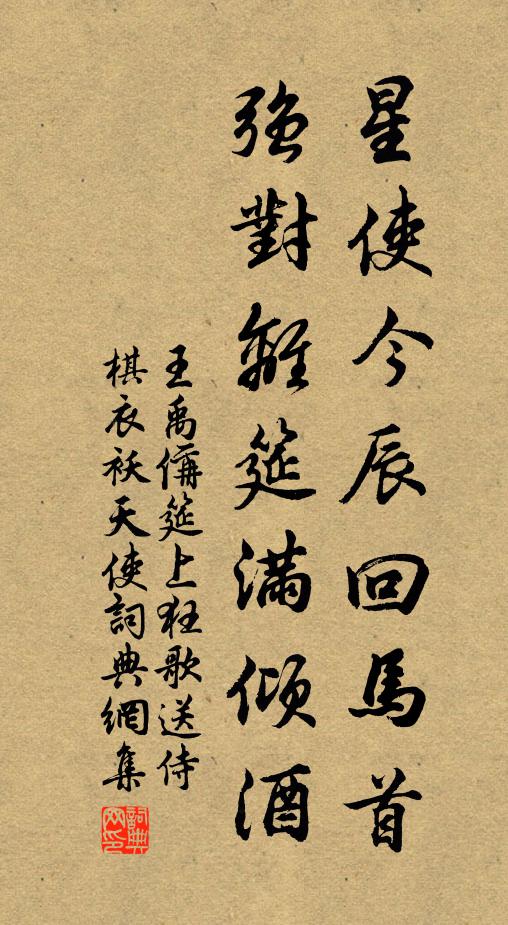 星使今辰回馬首
強對離筵滿傾酒
王禹偁筵上狂歌送侍
棋衣袄天使詞典網集
詞典网印